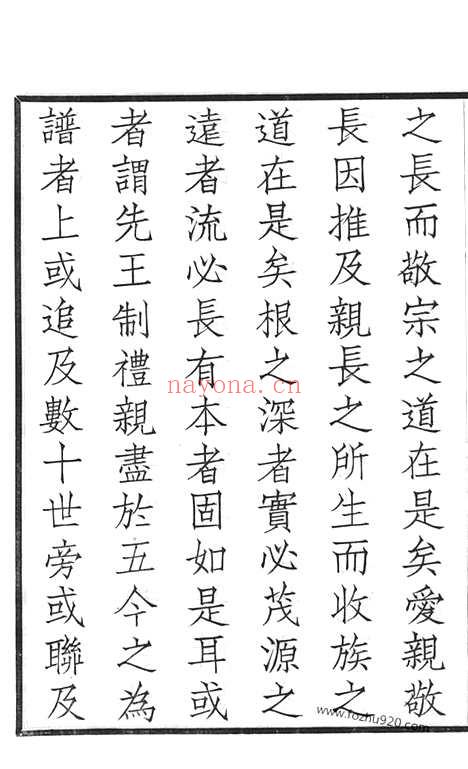 之長而敬宗之道在是矣愛親敬
長因推及親長之所生而收族之
道在是矣根之深者實必茂源之
遠者流必長有本者固如是耳或
者謂先王制禮親盡於五今之為
譜者上或追及數十世旁或聯及
nayona.cn
www.fozhu920.com